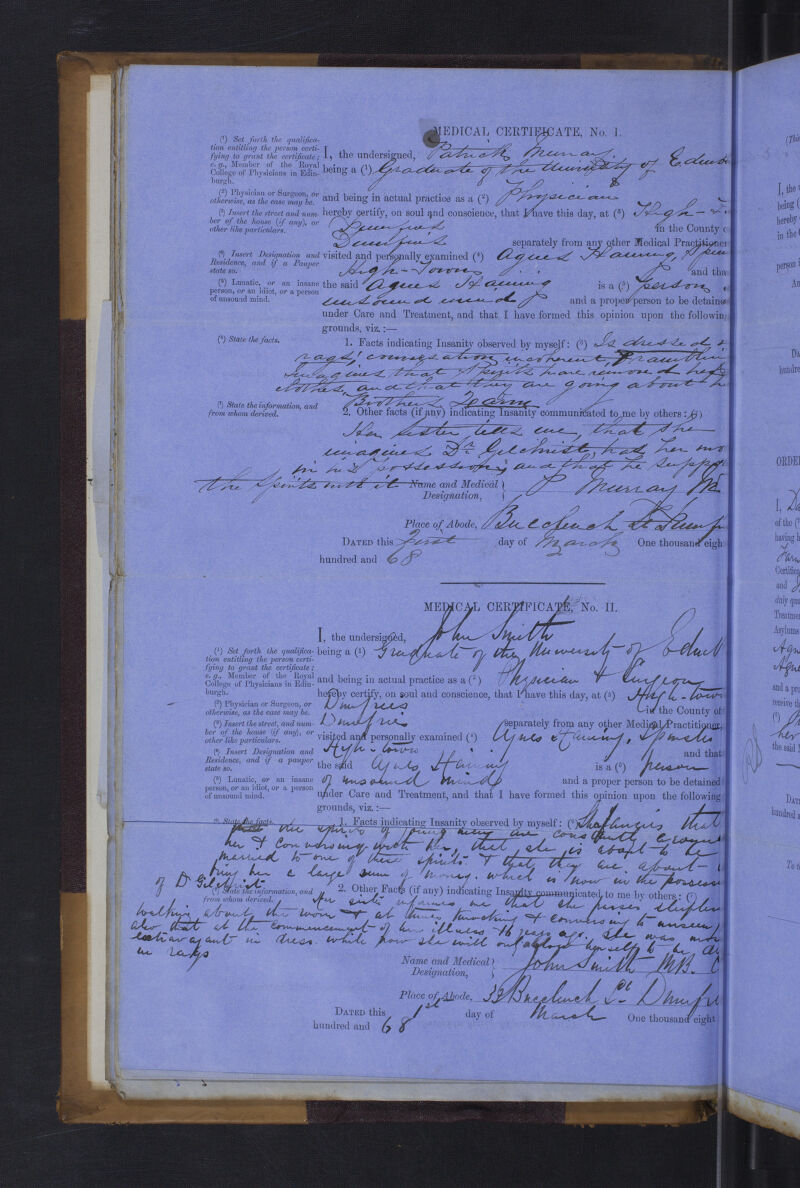 MEDICAL CERTIFICATE, No. I.
(1) Set forth the qualifica-
tion entitling the person certi-
fying to grant the certificate;
e.g., Member of the Royal
College of Physicians in Edin-
burgh.
(2) Physician or Surgeon, or
otherwise, as the case may be.
(3) Insert the street and num-
ber of the house (if any), or
other like particulars.
(4) Insert Designation and
Residence, and if a Pauper
state so.
(5) Lunatic, or an insane
person, or an idiot, or a person
of unsound mind.
(6) State the facts.
(7) State the information, and
from whom derived.
I, the undersigned, Patrick Murray
being a (1) Graduate of the University of Edinb
and being in actual practice as a (2) Physician
hereby certify, on soul and conscience, that I have this day, at (3) High-T
Dumfries in the County o
Dumfries separately from any other Medical Practitioner
visited and personally examined (4) Agnes Haining, Spin
High-Town and tha
the said Agnes Haining is a (5) person
unsound mind and a proper person to be detaine
under Care and Treatment, and that I have formed this opinion upon the followin
grounds, viz.:—
1. Facts indicating Insanity observed by myself: (6) Is dressed
rags; conversation incoherent, & ramblin
Imagines that Spirits have removed her
clothes, and that they are going about h
Brothers Farm
2. Other facts (if any) indicating Insanity communicated to me by others: (7)
Her Sister tells me, that she
imagines Dr. Gilchrist, has her mo
in his possession, and that he supp
the Spirits with it
Name and Medical
Designation, P Murray
Place of Abode, Buccleuch St Dumf
DATED this first day of March One thousand eigh
hundred and 68
MEDICAL CERTIFICATE, No. II.
(1) Set forth the qualifica-
tion entitling the person certi-
fying to grant the certificate;
e.g., Member of the Royal
College of Physicians in Edin-
burgh.
(2) Physician or Surgeon, or
otherwise, as the case may be.
(3) Insert the street, and num-
ber of the house (if any), or
other like particulars.
(4) Insert Designation and
Residence, and if a pauper
state so.
(5) Lunatic, or an insane
person, or an idiot, or a person
of unsound mind.
(6) State the facts.
(7) State the information, and
from whom derived.
I, the undersigned, John Smith
being a (1) Graduate of the University of Edinb
and being in actual practice as a (2) Physician & Surgeon
hereby certify, on soul and conscience, that I have this day, at (3) High-town
Dumfries in the County of
Dumfries separately from any other Medical Practitioner,
visited and personally examined (4) Agnes Haining, Spinster
High-town and that
the said Agnes Haining is a (5) person
of unsound mind and a proper person to be detained
under Care and Treatment, and that I have formed this opinion upon the following
grounds, viz.:—
1. Facts indicating Insanity observed by myself: (6) She fancies that
the spirits of young men are constantly around
her & conversing with her, that she is about to be
married to one of these spirits & that they are about to
bring her a large sum of money which is now in the possess
of Dr Gilchrist.
2. Other Facts (if any) indicating Insanity communicated to me by others: (7)
Her sister informs me that she passes sleepless
walking about the room & at times knocking & conversing to unseen
also that at the commencement of her illness 16 years ago. She was mos
extravagant in dress. while now she will only allow herself to be
in rags
Name and Medical
Designation, John Smith MB. C
Place of Abode, 33 Buccleuch St. Dumfri
DATED this 1st day of March One thousand eight
hundred and 68
(Thi
I, the
being (
hereby
in the
person i
ORDE
I,
of the (
having
Certific
and
duly qua
Treatmen
Asylums
Agn
Agne
and a pr
receive t
her
the said
DATE
hundred a
To t